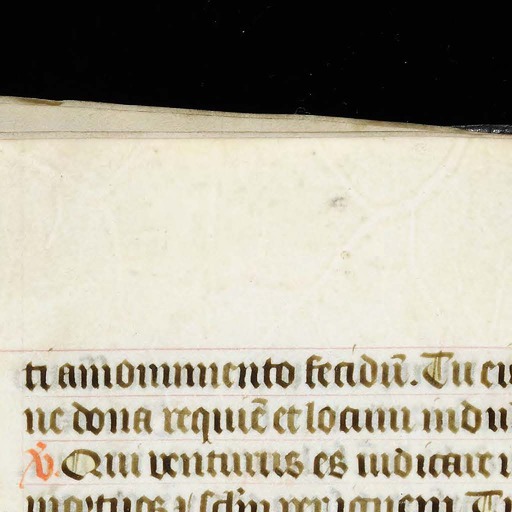 ti a monumento fetidū. Tu ei
ne dona requiē et locum indul
V. Qui venturus es iudicare
mortuos ⁊ sclm per ignem. Tu